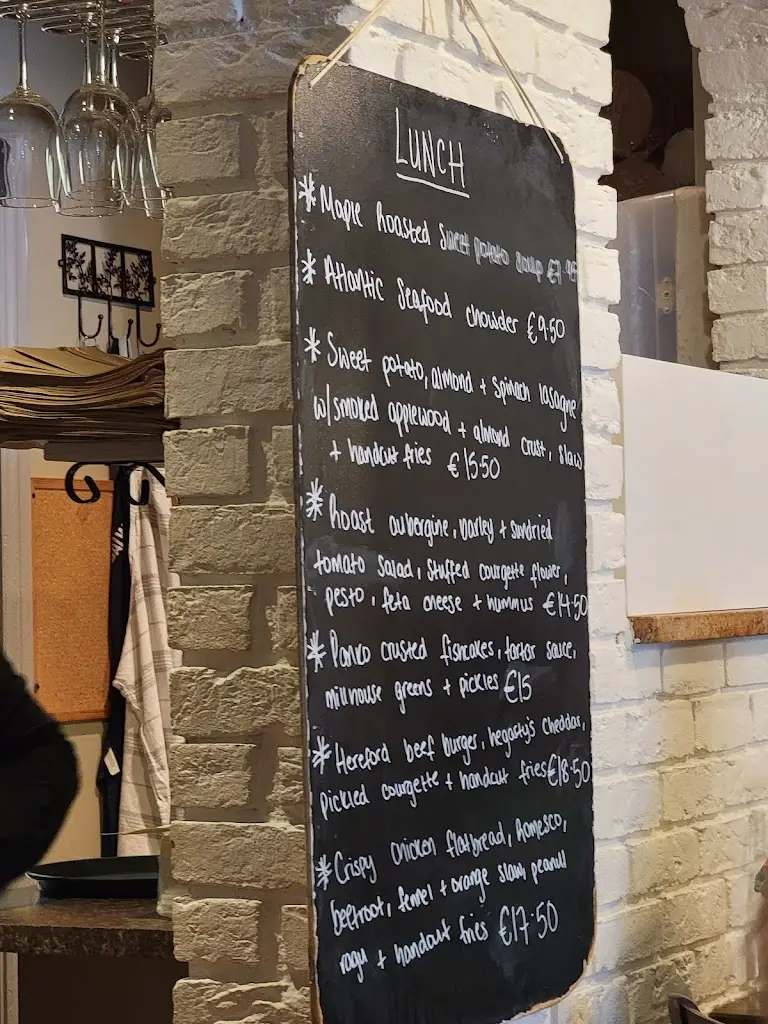 LUNCH
* Maple Roasted Sweet potato soup
* Atlantic Seafood chowder €9.50
* Sweet potato, almond + spinach lasagne
w/ smoked applewood + almond crust, slaw
+ handcut fries €15.50
* Roast aubergine, barley + sundried
tomato salad, stuffed courgette flower,
pesto, feta cheese + hummus €14.50
* Panko crusted fishcakes, tartar sauce,
millhouse greens + pickles €15
* Hereford beef burger, hegarty's cheddar,
pickled courgette + handcut fries €18.50
* Crispy chicken flatbread, Romesco,
beetroot, fennel + orange slaw, peanut
ragu + handcut fries €17.50